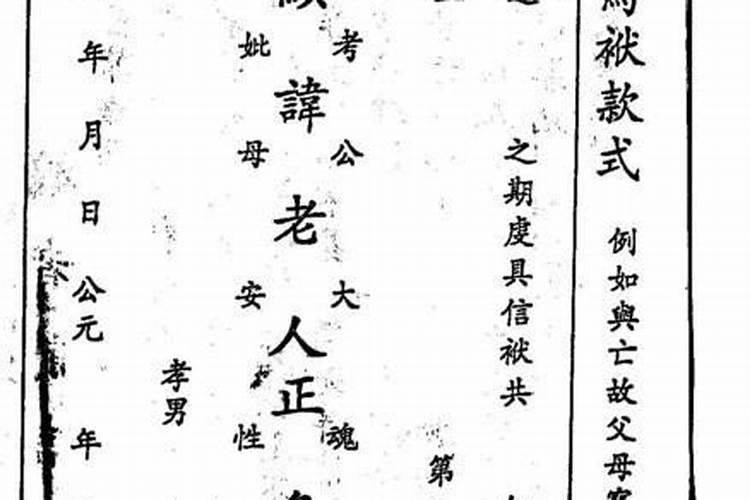 袱款式 例如與亡故父母
之期虔具信袱共
第
考公大魂
諱老人正
妣母安性
孝男
年月日公元 年